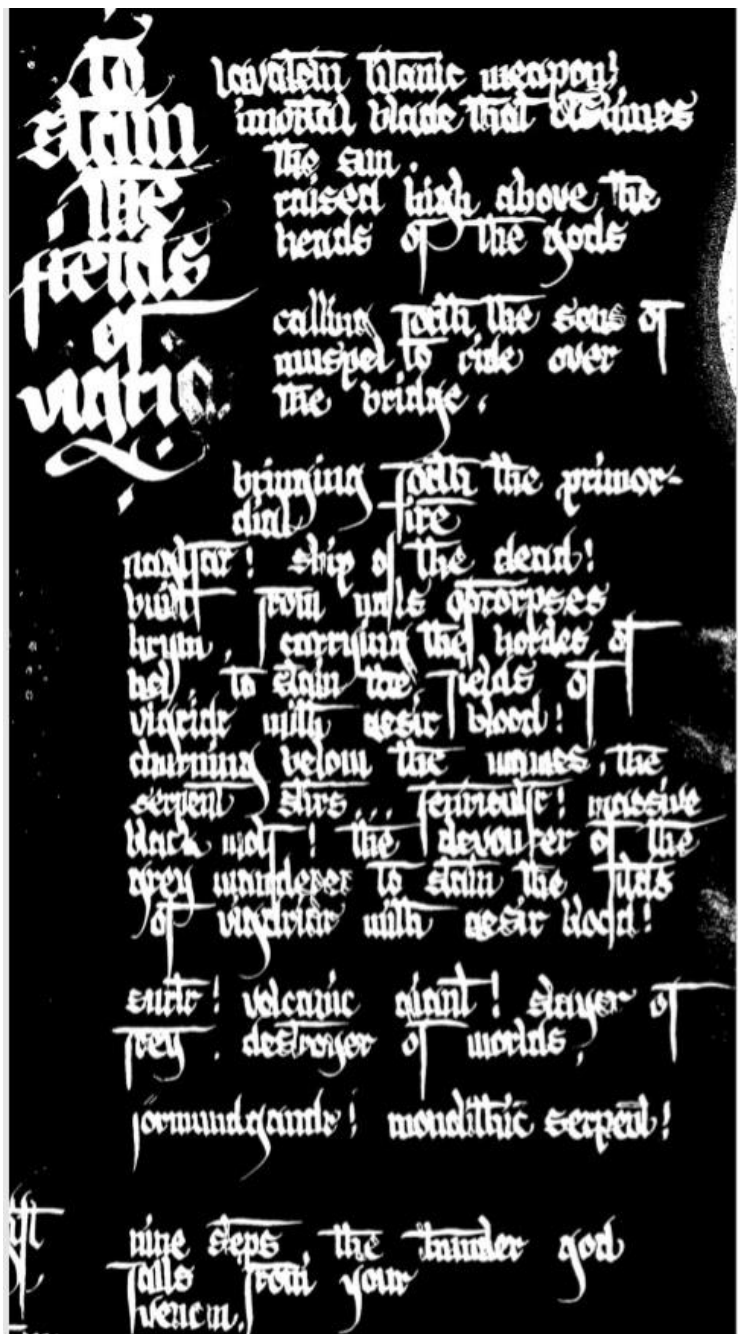 to
stain
the
fields
of
vigrid
lavatein titanic weapon!
imortal blade that outshines
the sun.
raised high above the
heads of the gods
calling forth the sons of
muspel to ride over
the bridge.
bringing forth the primor-
dial fire
naglfar! ship of the dead!
built from nails of corpses
hrym, carrying the hordes of
hel, to stain the fields of
vigridr with aesir blood!
churning below the waves, the
serpent stirs... fenrisulfr! massive
black wolf! the devourer of the
grey wanderer to stain the filds
of vigdridr with aesir blood!
surtr! volcanic giant! slayer of
frey. destroyer of worlds,
jormundgandr! monolithic serpent!
nine steps the thunder god
falls from your
venom.